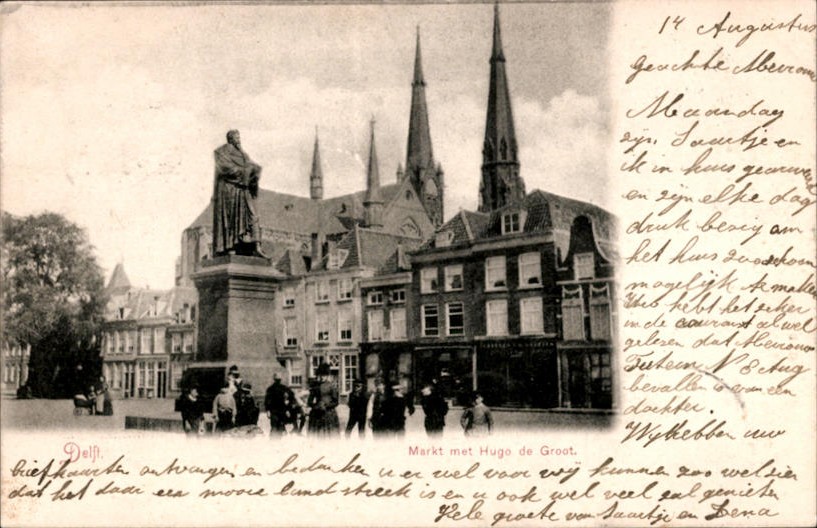 14 Augustus
geachte Mevrouw
Maandag
zijn Saartje en
ik in huis gearriveerd
en zijn elke dag
druk bezig om
het huis zoo schoon
mogelijk te maken
U hebt het zeker
in de courant al wel
gelezen dat Mevrouw
8 Aug
bevallen is van een
dochter.
Wij hebben uw
briefkaarten ontvangen en bedanken u er wel voor wij kunnen zoo wel zien
dat het daar een mooie landstreek is en u ook wel veel zal genieten
Vele groete van Saartje en Lena
Delft.
Markt met Hugo de Groot.